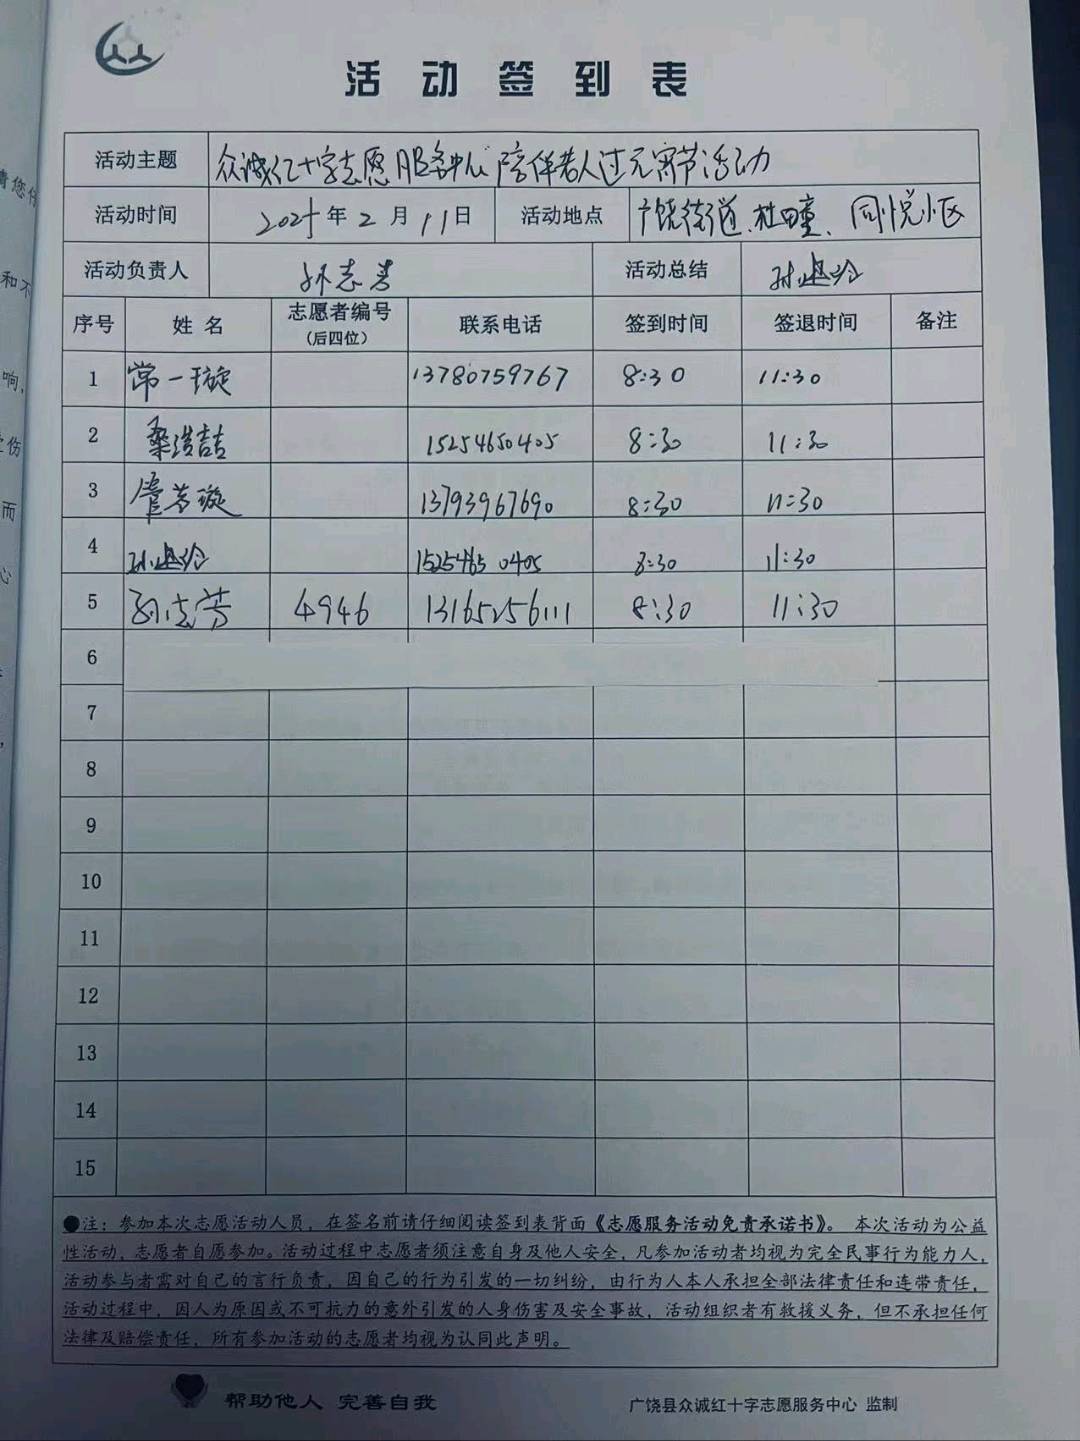 活动签到表
活动主题 众诚红十字志愿服务中心 陪伴老人过元宵节活动
活动时间 2025年2月11日 活动地点 广饶街道、杜疃、同悦小区
活动负责人 孙志芳 活动总结
序号 姓名 志愿者编号 联系电话 签到时间 签退时间 备注
(后四位)
1 常一璇 13780759767 8:30 11:30
2 桑浩喆 15254650405 8:30 11:30
3 管芳璇 13793967690 8:30 11:30
4 15254650405 8:30 11:30
5 孙志芳 4946 13165256111 8:30 11:30
6
7
8
9
10
11
12
13
14
15
●注：参加本次志愿活动人员，在签名前请仔细阅读签到表背面《志愿服务活动免责承诺书》。本次活动为公益
性活动，志愿者自愿参加。活动过程中志愿者须注意自身及他人安全，凡参加活动者均视为完全民事行为能力人，
活动参与者需对自己的言行负责，因自己的行为引发的一切纠纷，由行为人本人承担全部法律责任和连带责任，
活动过程中，因人为原因或不可抗力的意外引发的人身伤害及安全事故，活动组织者有救援义务，但不承担任何
法律及赔偿责任，所有参加活动的志愿者均视为认同此声明。
帮助他人 完善自我 广饶县众诚红十字志愿服务中心 监制